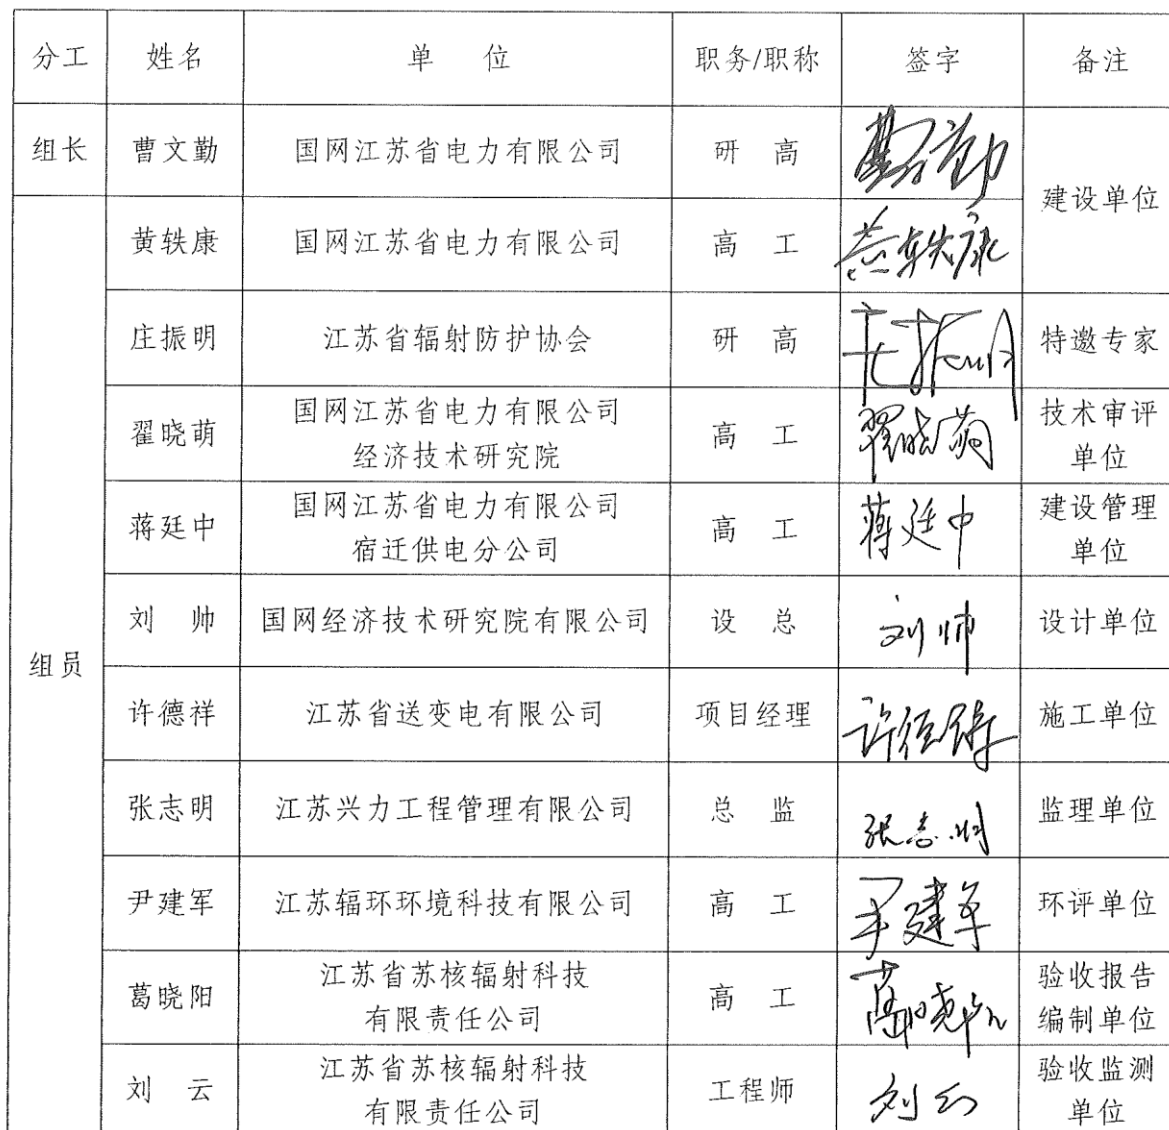 分工 姓名 单 位 职务/职称 签字 备注
组长 曹文勤 国网江苏省电力有限公司 研 高 曹文勤 建设单位
组员
黄轶康 国网江苏省电力有限公司 高 工 黄轶康
庄振明 江苏省辐射防护协会 研 高 庄振明 特邀专家
翟晓萌 国网江苏省电力有限公司
经济技术研究院 高 工 翟晓萌 技术审评
单位
蒋廷中 国网江苏省电力有限公司
宿迁供电分公司 高 工 蒋廷中 建设管理
单位
刘 帅 国网经济技术研究院有限公司 设 总 刘帅 设计单位
许德祥 江苏省送变电有限公司 项目经理 许德祥 施工单位
张志明 江苏兴力工程管理有限公司 总 监 张志明 监理单位
尹建军 江苏辐环环境科技有限公司 高 工 尹建军 环评单位
葛晓阳 江苏省苏核辐射科技
有限责任公司 高 工 葛晓阳 验收报告
编制单位
刘 云 江苏省苏核辐射科技
有限责任公司 工程师 刘云 验收监测
单位